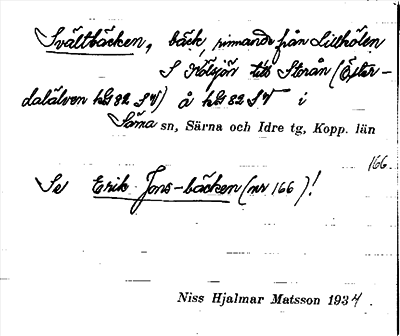 Svältbäcken, bäck, rinnande från Lillhölen
S Hölsjön till Storån (Öster-
dalälven hbl 82 SV) å hbl 82 SV i
Särna sn, Särna och Idre tg, Kopp. län
166.
Se Erik Jons-bäcken (nr 166)!
Niss Hjalmar Matsson 1934.